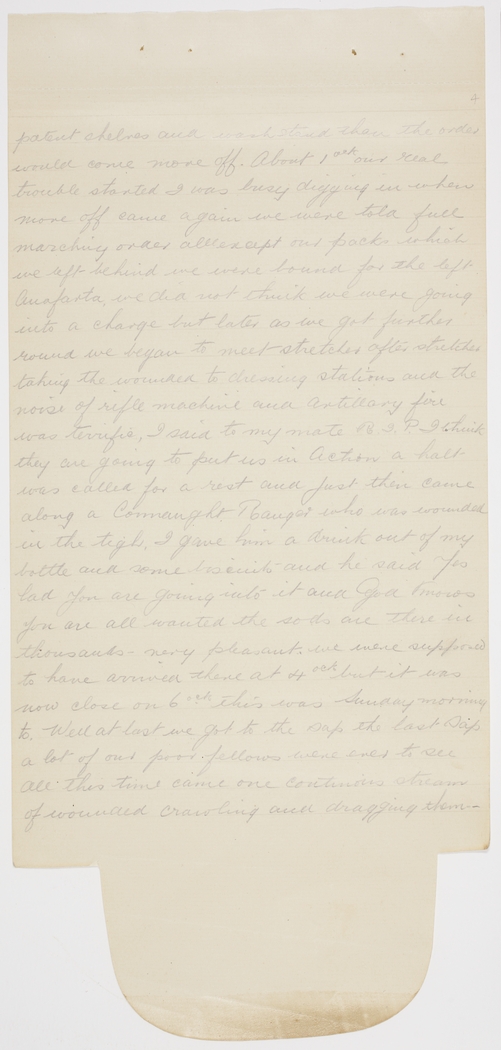 4
patent shelves and then the order
would come move off. About 1 ock our real
trouble started I was busy digging in when
move off came again we were told full
marching order all except our packs which
we left behind we were bound for the left
Anafarta, we did not think we were going
into a charge but later as we got further
round we began to meet stretcher after stretcher
taking the wounded to dressing stations and the
noise of rifle machine and artillary fire
was terrific, I said to my mate R.I.P. I think
they are going to put us in Action a halt
was called for a rest and Just then came
along a Connaught Ranger who was wounded
in the tigh, I gave him a drink out of my
bottle and some biscuits and he said Yes
lad you are going into it and God knows
you are all wanted the sods are there in
thousands - very pleasant. we were supposed
to have arrived there at 4 ock but it was
now close on 6 ock this was Sunday morning
to. Well at last we got to the sap the last sap
a lot of our poor fellows were ever to see
all this time came one continous stream
of wounded crawling and dragging them-